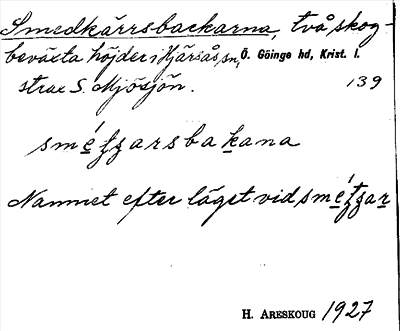 Smedkärrsbackarna, två skog-
beväxta höjder i Hjärsås sn, Ö. Göinge hd, Krist. l.
strax S. Mjösjön.
139
smézzarsbakana
Namnet efter läget vid smézzar
H. ARESKOUG 1927